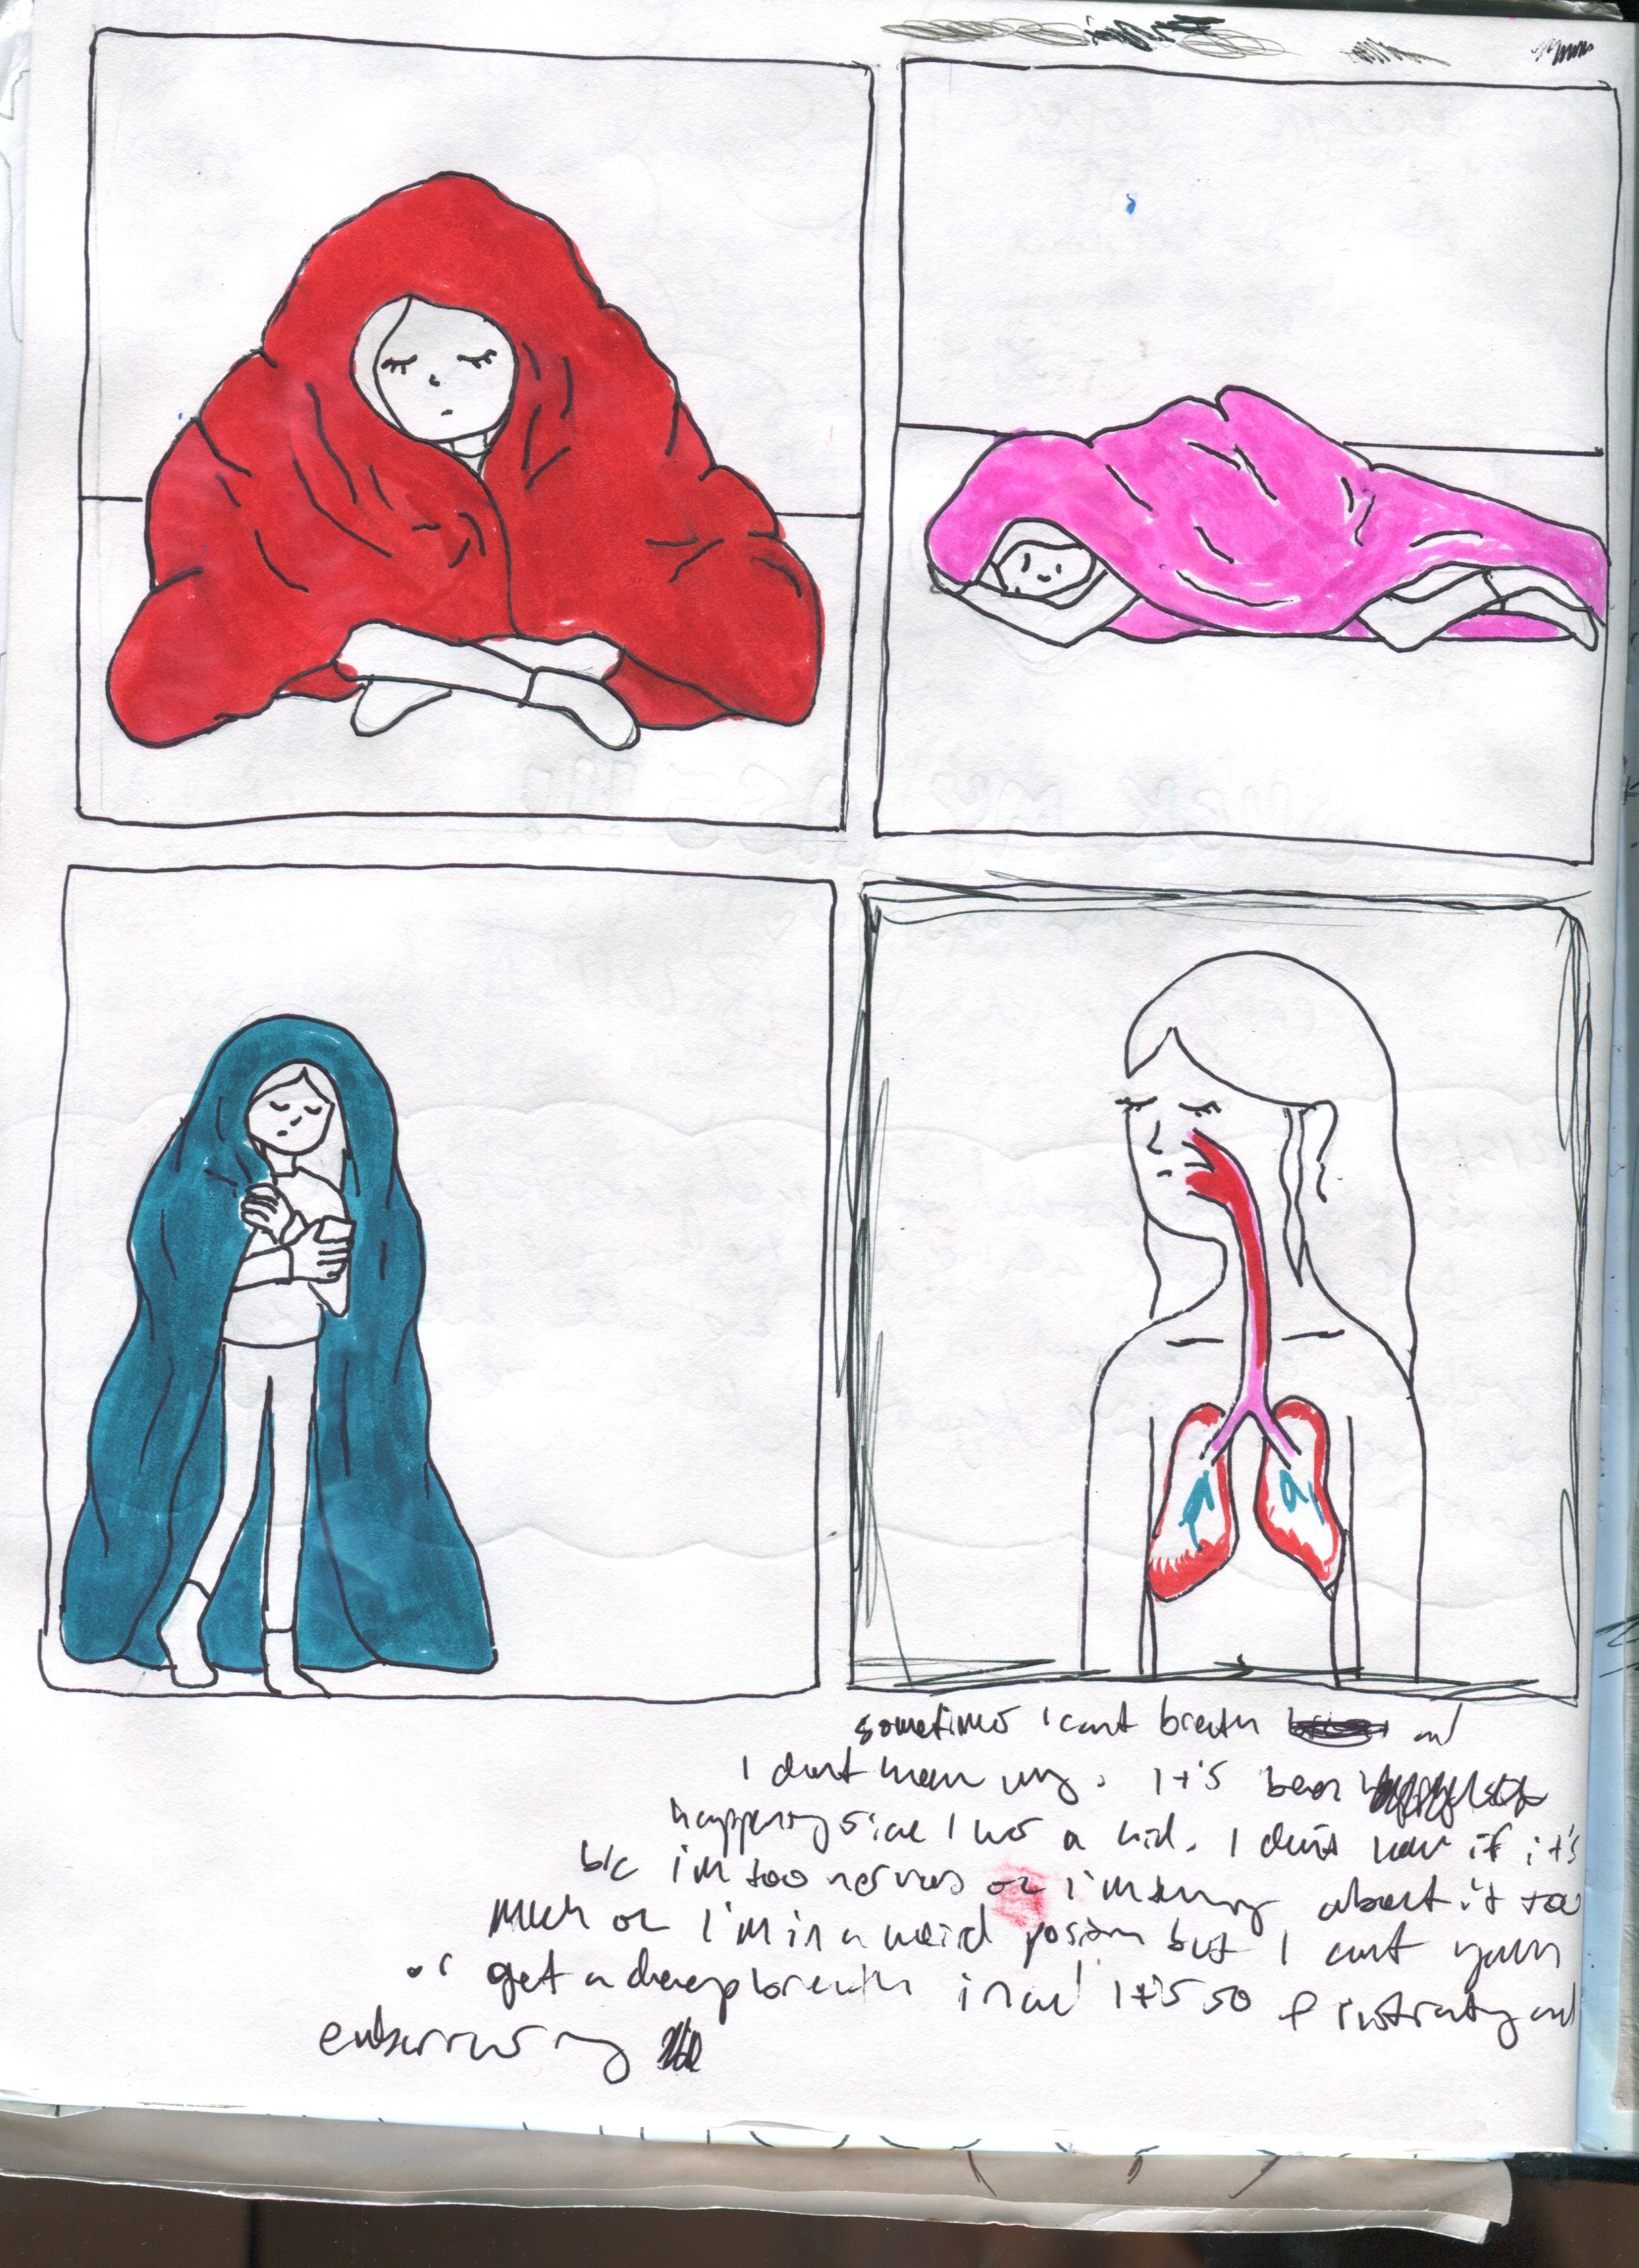 sometimes i cant breath and
I dont know why. It's been
happening since I was a kid. I don't know if it's
b/c i'm too nervous or i'm thinking about it too
much or I'm in a weird position but I cant yawn
or get a deep breath in and It's so frustrating and
embarrassing